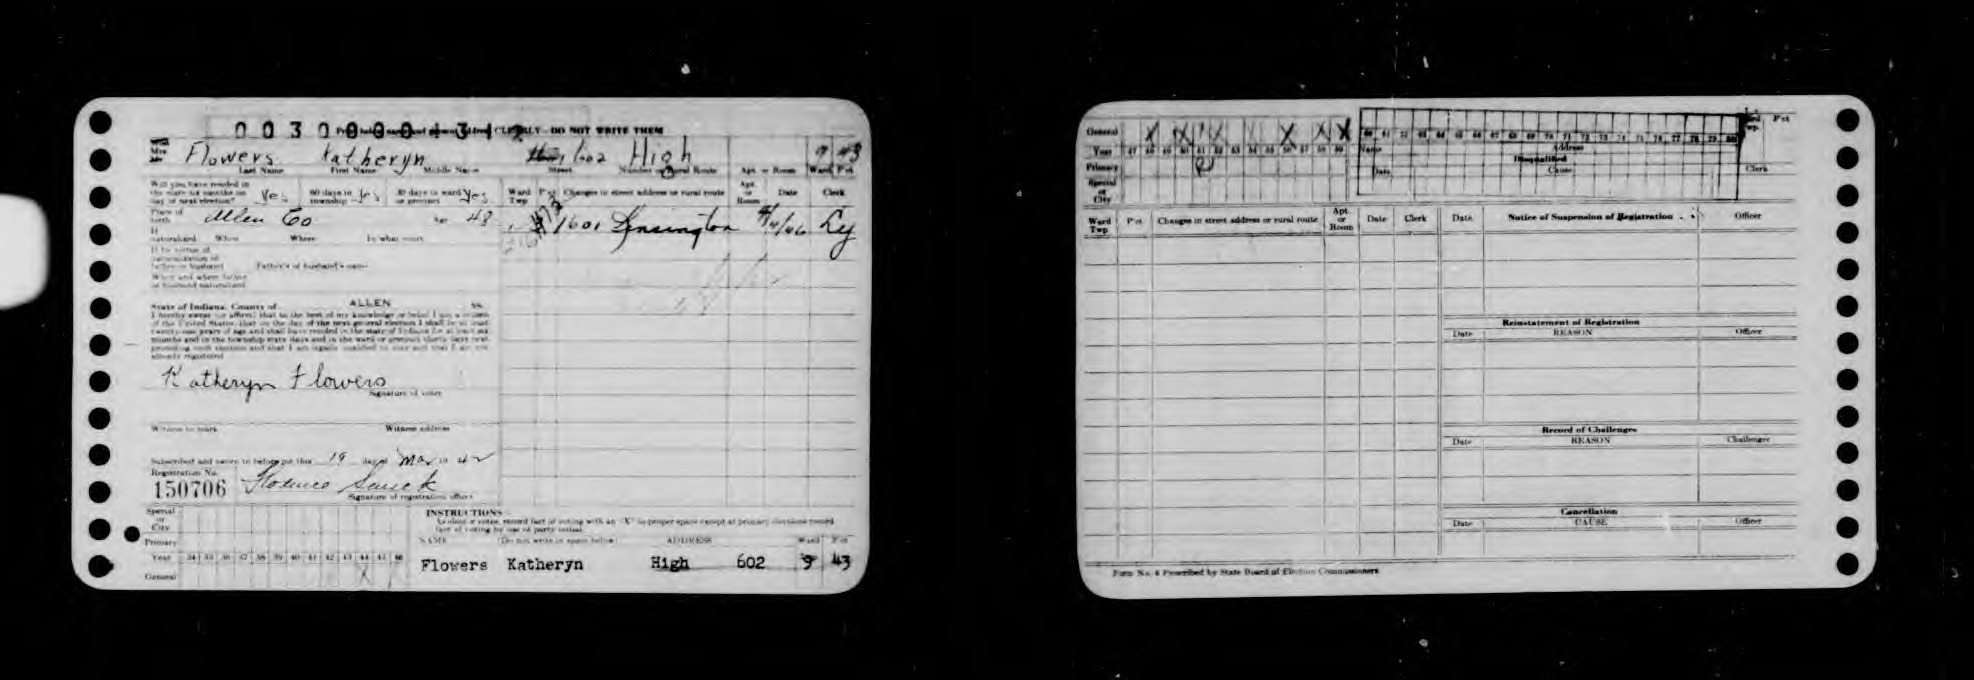 0030000 312
CLEARLY DO NOT WRITE THEM
Flowers Katheryn 602 High 9 43
Last Name First Name Middle Name Street Number or Rural Route Apt. or Room Ward P'ct
Will you have resided in the state six months on day of next election? Yes 60 days in township Yes 30 days in ward or precinct Yes
Ward Twp P'ct Changes in street address or rural route Apt. or Room Date Clerk
Place of birth Allen Co Age 48
1601 4/4/46 Ly
If naturalized. When Where In what court
Father's or husband's name
When and where father or husband naturalized
State of Indiana, County of ALLEN SS.
I hereby swear or affirm that to the best of my knowledge or belief I am a citizen
of the United States, that on the day of the next general election I shall be at least
twenty-one years of age and shall have resided in the state of Indiana for at least six
months and in the township sixty days and in the ward or precinct thirty days next
preceding such election and that I am legally qualified to vote and that I am not
already registered
Katheryn Flowers
Signature of voter
Witness to mark Witness address
Subscribed and sworn to before me this 19 day Mar 19 42
Registration No.
150706
Signature of registration officer
Special or City
Primary
Year 34 35 36 37 38 39 40 41 42 43 44 45 46
General X
INSTRUCTIONS
NAME (Do not write in space below) ADDRESS Ward P'ct
Flowers Katheryn High 602 9 43
General X X X X X X
Year 47 48 49 50 51 52 53 54 55 56 57 58 59 60 61 62 63 64 65 66 67 68 69 70 71 72 73 74 75 76 77 78 79 80
Primary
Special or City
Name Address P'ct
Disqualified
Date Cause Clerk
Ward Twp P'ct Changes in street address or rural route Apt. or Room Date Clerk
Date Notice of Suspension of Registration Officer
Reinstatement of Registration
Date REASON Officer
Record of Challenges
Date REASON Challenger
Cancellation
Date CAUSE Officer
Form No. 6 Prescribed by State Board of Election Commissioners